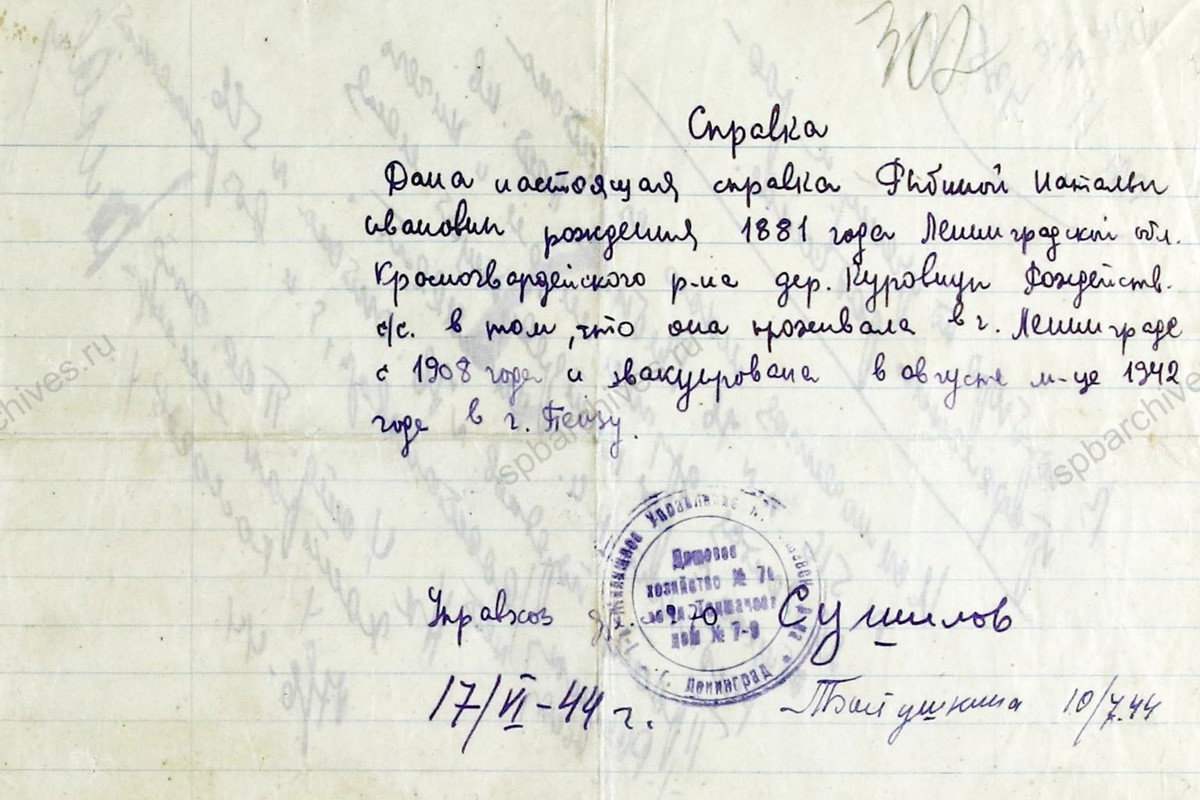 302
Справка
Дана настоящая справка Рыбиной Натальи
Ивановны рождения 1881 года Ленинградской обл.
Красногвардейского р-на дер. Куровицы Рождейств.
с/с. в том, что она проживала в г. Ленинграде
с 1908 года и эвакуирована в августе м-це 1942
годе в г. Пензу.
Жилищное Управление
Домовое
хозяйство № 7
дом № 7-9
г. Ленинград
Управхоз Сушилов
17/VI-44 г.
10/7.44
spbarchives.ru
spbarchives.ru
spbarchives.ru